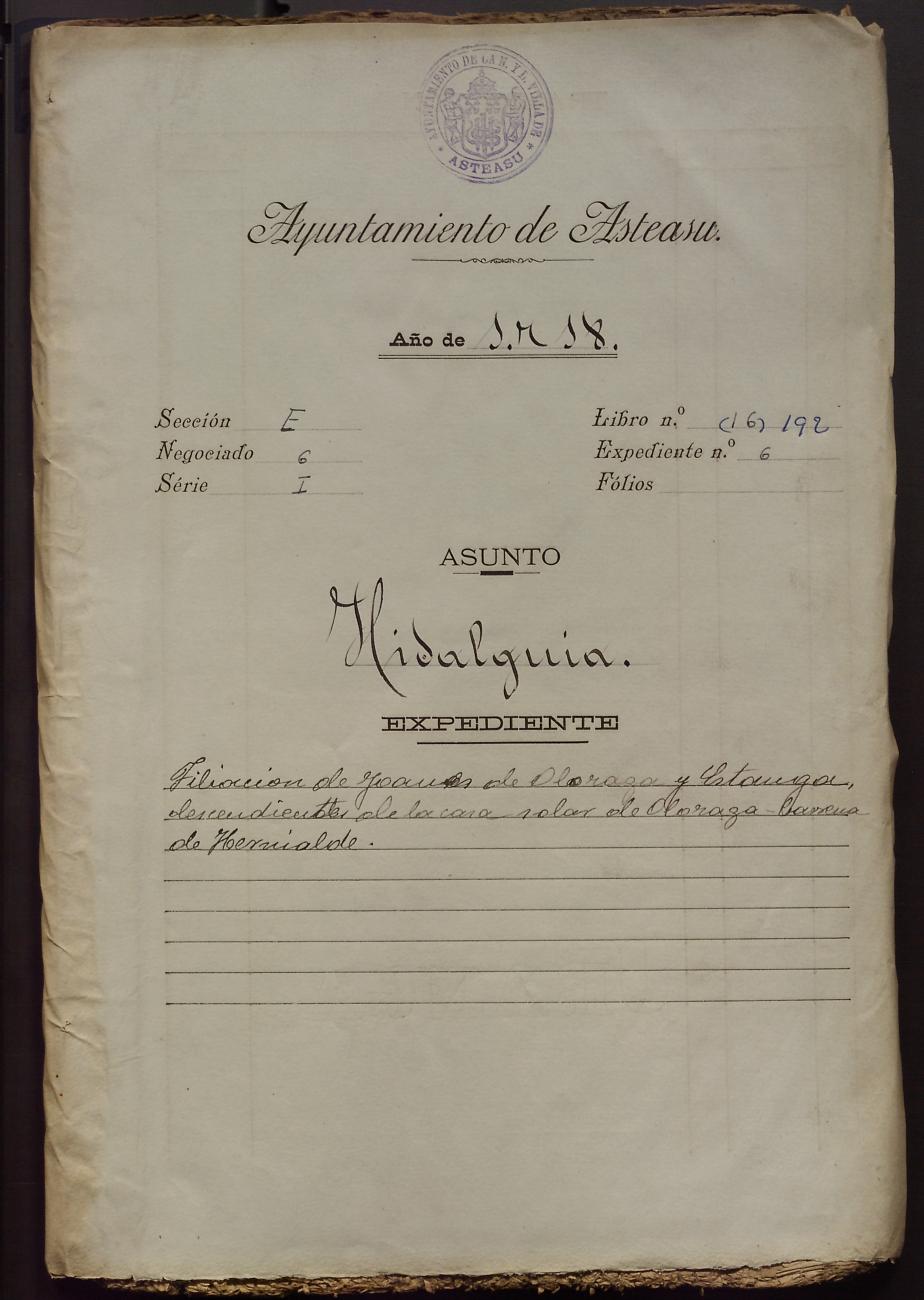 AYUNTAMIENTO DE LA N. Y L. VILLA DE
* ASTEASU *
Ayuntamiento de Asteasu.
Año de 1.718.
Sección E
Libro n.º (16) 192
Negociado 6
Expediente n.º 6
Série I
Fólios
ASUNTO
Hidalguia.
EXPEDIENTE
Filiacion de Joanes de Oloraga y Estanga,
descendientes de la casa solar de Oloraga-Barrena
de Hernialde.